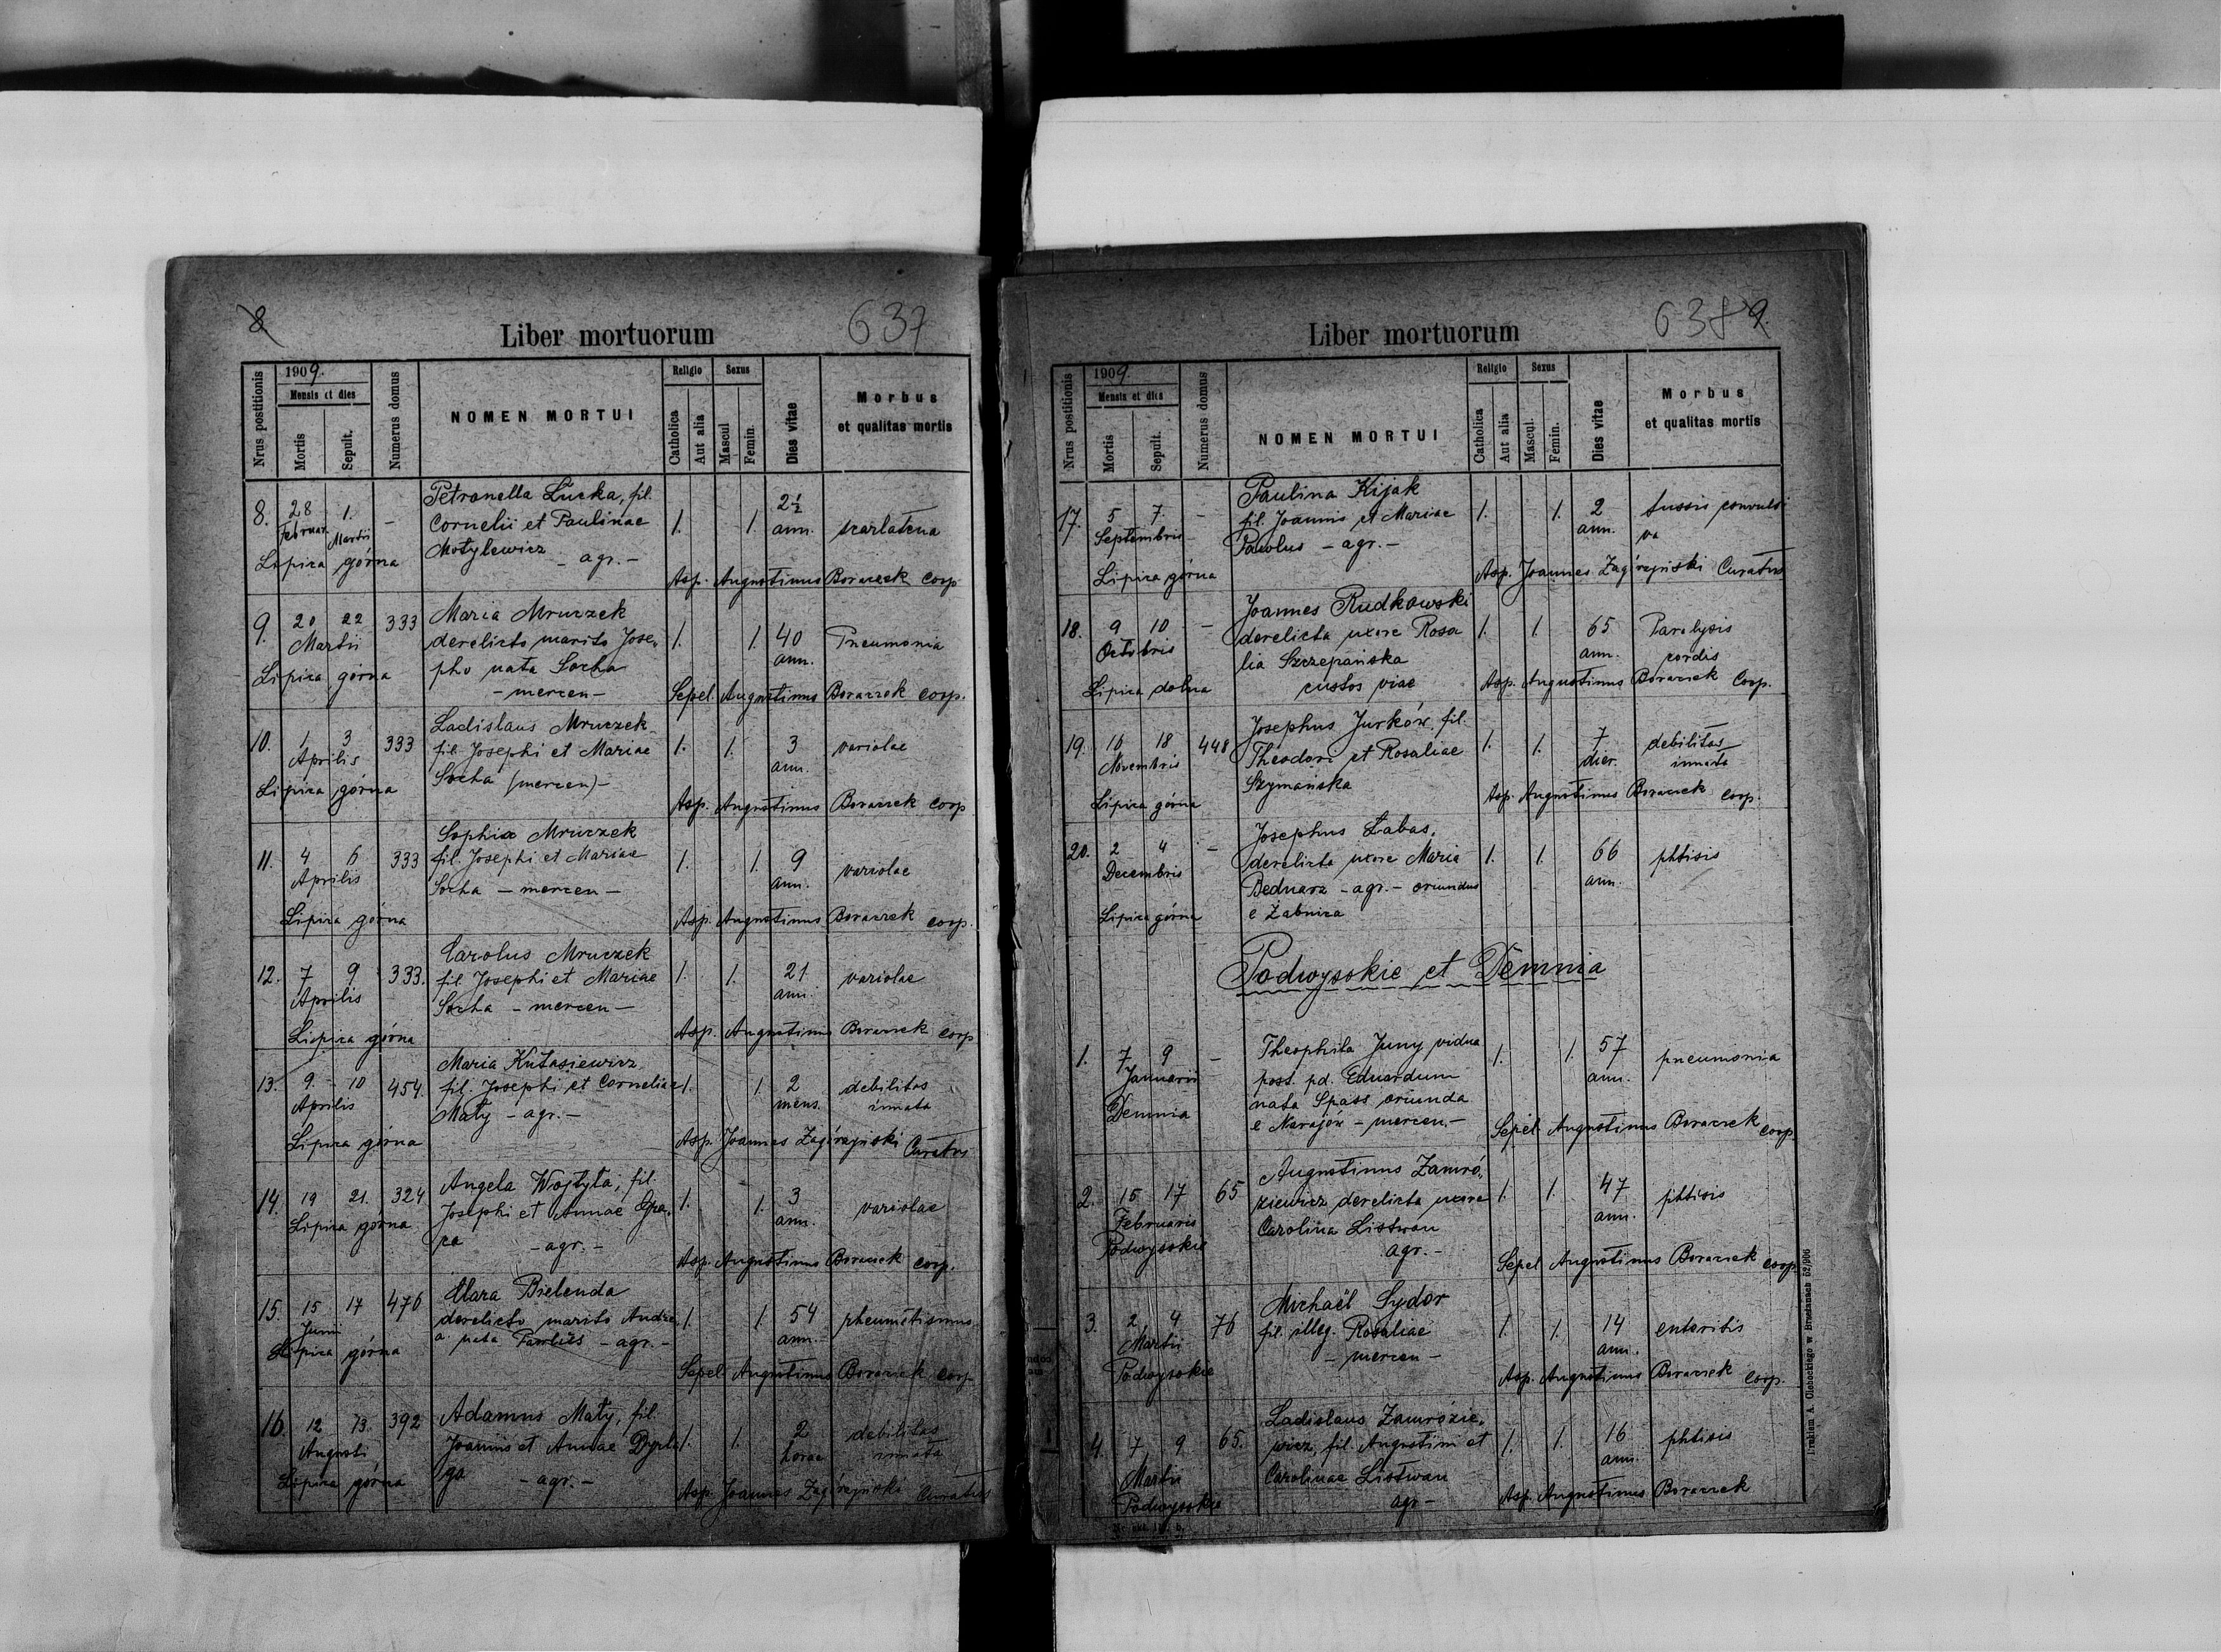 8
Liber mortuorum
637
Nrus postitionis
1909.
Mensis et dies
Mortis
Sepult.
Numerus domus
NOMEN MORTUI
Religio
Catholica
Aut alia
Sexus
Mascul
Femin.
Dies vitae
Morbus
et qualitas mortis
8. 28 1. - Petronella Łucka, fil. 1. 1. 2½
Februar. Martii Cornelii et Paulinae ann. scarlatena
Motylewicz - agr. -
Lipica górna
Asp. Augustinus Boraczek Coop
9. 20 22 333 Maria Mruczek 1. 1. 40 Pneumonia
Martii derelicto marito Jose, ann.
Lipica górna pho nata Socha
- mercen -
Sepel. Augustinus Boraczek coop.
10. 1. 3 333 Ladislaus Mruczek 1. 1. 3 variolae
Aprilis fil. Josephi et Mariae ann.
Lipica górna Socha (mercen) -
Asp. Augustinus Boraczek coop
11. 4 6 333 Sophia Mruczek 1. 1. 9 variolae
Aprilis fil. Josephi et Mariae ann.
Socha - mercen -
Lipica górna
Asp. Augustinus Boraczek coop.
12. 7 9 333. Carolus Mruczek 1. 1. 21 variolae
Aprilis fil Josephi et Mariae ann.
Socha - mercen -
Lipica górna
Asp. Augustinus Boraczek coop
13. 9 - 10 454. Maria Kutasiewicz 1. 1. 2 debilitas
Aprilis fil. Josephi et Corneliae mens. innata
Mały - agr. -
Lipica górna
Asp. Joannes Zagórzyński Curatus
14. 19 21. 324 Angela Wojtyła, fil. 1. 1. 3 variolae
Lipica górna Josephi et Annae Gra, ann.
ca - agr. -
Asp. Augustinus Boraczek coop.
15. 15 17 476 Clara Bielenda 1. 1. 54 rheumatismus
Junii derelicto marito Andre, ann.
Lipica górna a nata - agr. -
Sepel Augustinus Boraczek coop
16. 12 13. 392 Adamus Mały, fil. 1. 1. 2 debilitas
Augusti Joannis et Annae Dyrla horae innata
Lipica górna ga - agr. -
Asp. Joannes Zagórzyński Curatus
Liber mortuorum
638 9.
Nrus postitionis
1909
Mensis et dies
Mortis
Sepult.
Numerus domus
NOMEN MORTUI
Religio
Catholica
Aut alia
Sexus
Mascul.
Femin.
Dies vitae
Morbus
et qualitas mortis
17. 5 7. - Paulina Kijak 1. 1. 2 tussis convulsi
Septembris fil. Joannis et Mariae ann. va
Pawlus - agr. -
Lipica górna
Asp. Joannes Zagórzyński Curatus
18. 9 10 - Joannes Rudkowski 1. 1. 65 Paralysis
Octobris derelicta uxore Rosa ann. cordis
lia Szczepańska
Lipica dolna custos viae
Asp. Augustinus Boraczek Coop.
19. 16 18 448 Josephus Jurków, fil. 1. 1. 7 debilitas
Novembris Theodori et Rosaliae dier. innata
Szymańska
Lipica górna
Asp. Augustinus Boraczek coop.
20. 2 4 - Josephus Łabas, 1. 1. 66 phtisis
Decembris derelicta uxore Maria ann.
Bednarz - agr. - oriundus
Lipica górna e Żabnica
Podwysokie et Demnia
1. 7 9 - Theophila Juny vidua 1. 1. 57 pneumonia
Januarii post. pd. Eduardum ann.
Demnia nata Spass oriunda
e Narajów - mercen. -
Sepel Augustinus Boraczek coop.
2. 15 17 65 Augustinus Zamró, 1. 1. 47 phtisis
Februaris ziewicz derelicta uxore ann.
Podwysokie Carolina Listwan
agr. -
Sepel Augustinus Boraczek coop.
3. 2 4 76 Michaël Sydor 1. 1. 14 enteritis
Martii fil. illeg. Rosaliae ann.
Podwysokie - mercen -
Asp. Augustinus Boraczek coop.
4. 7 9 65. Ladislaus Zamrozie, 1. 1. 16 phtisis
Martii wicz, fil. Augustini et ann.
Podwysokie Carolinae Listwan
agr -
Asp. Augustinus Boraczek
Drukiem A. Olobeckiego w Brzeżanach 52/906